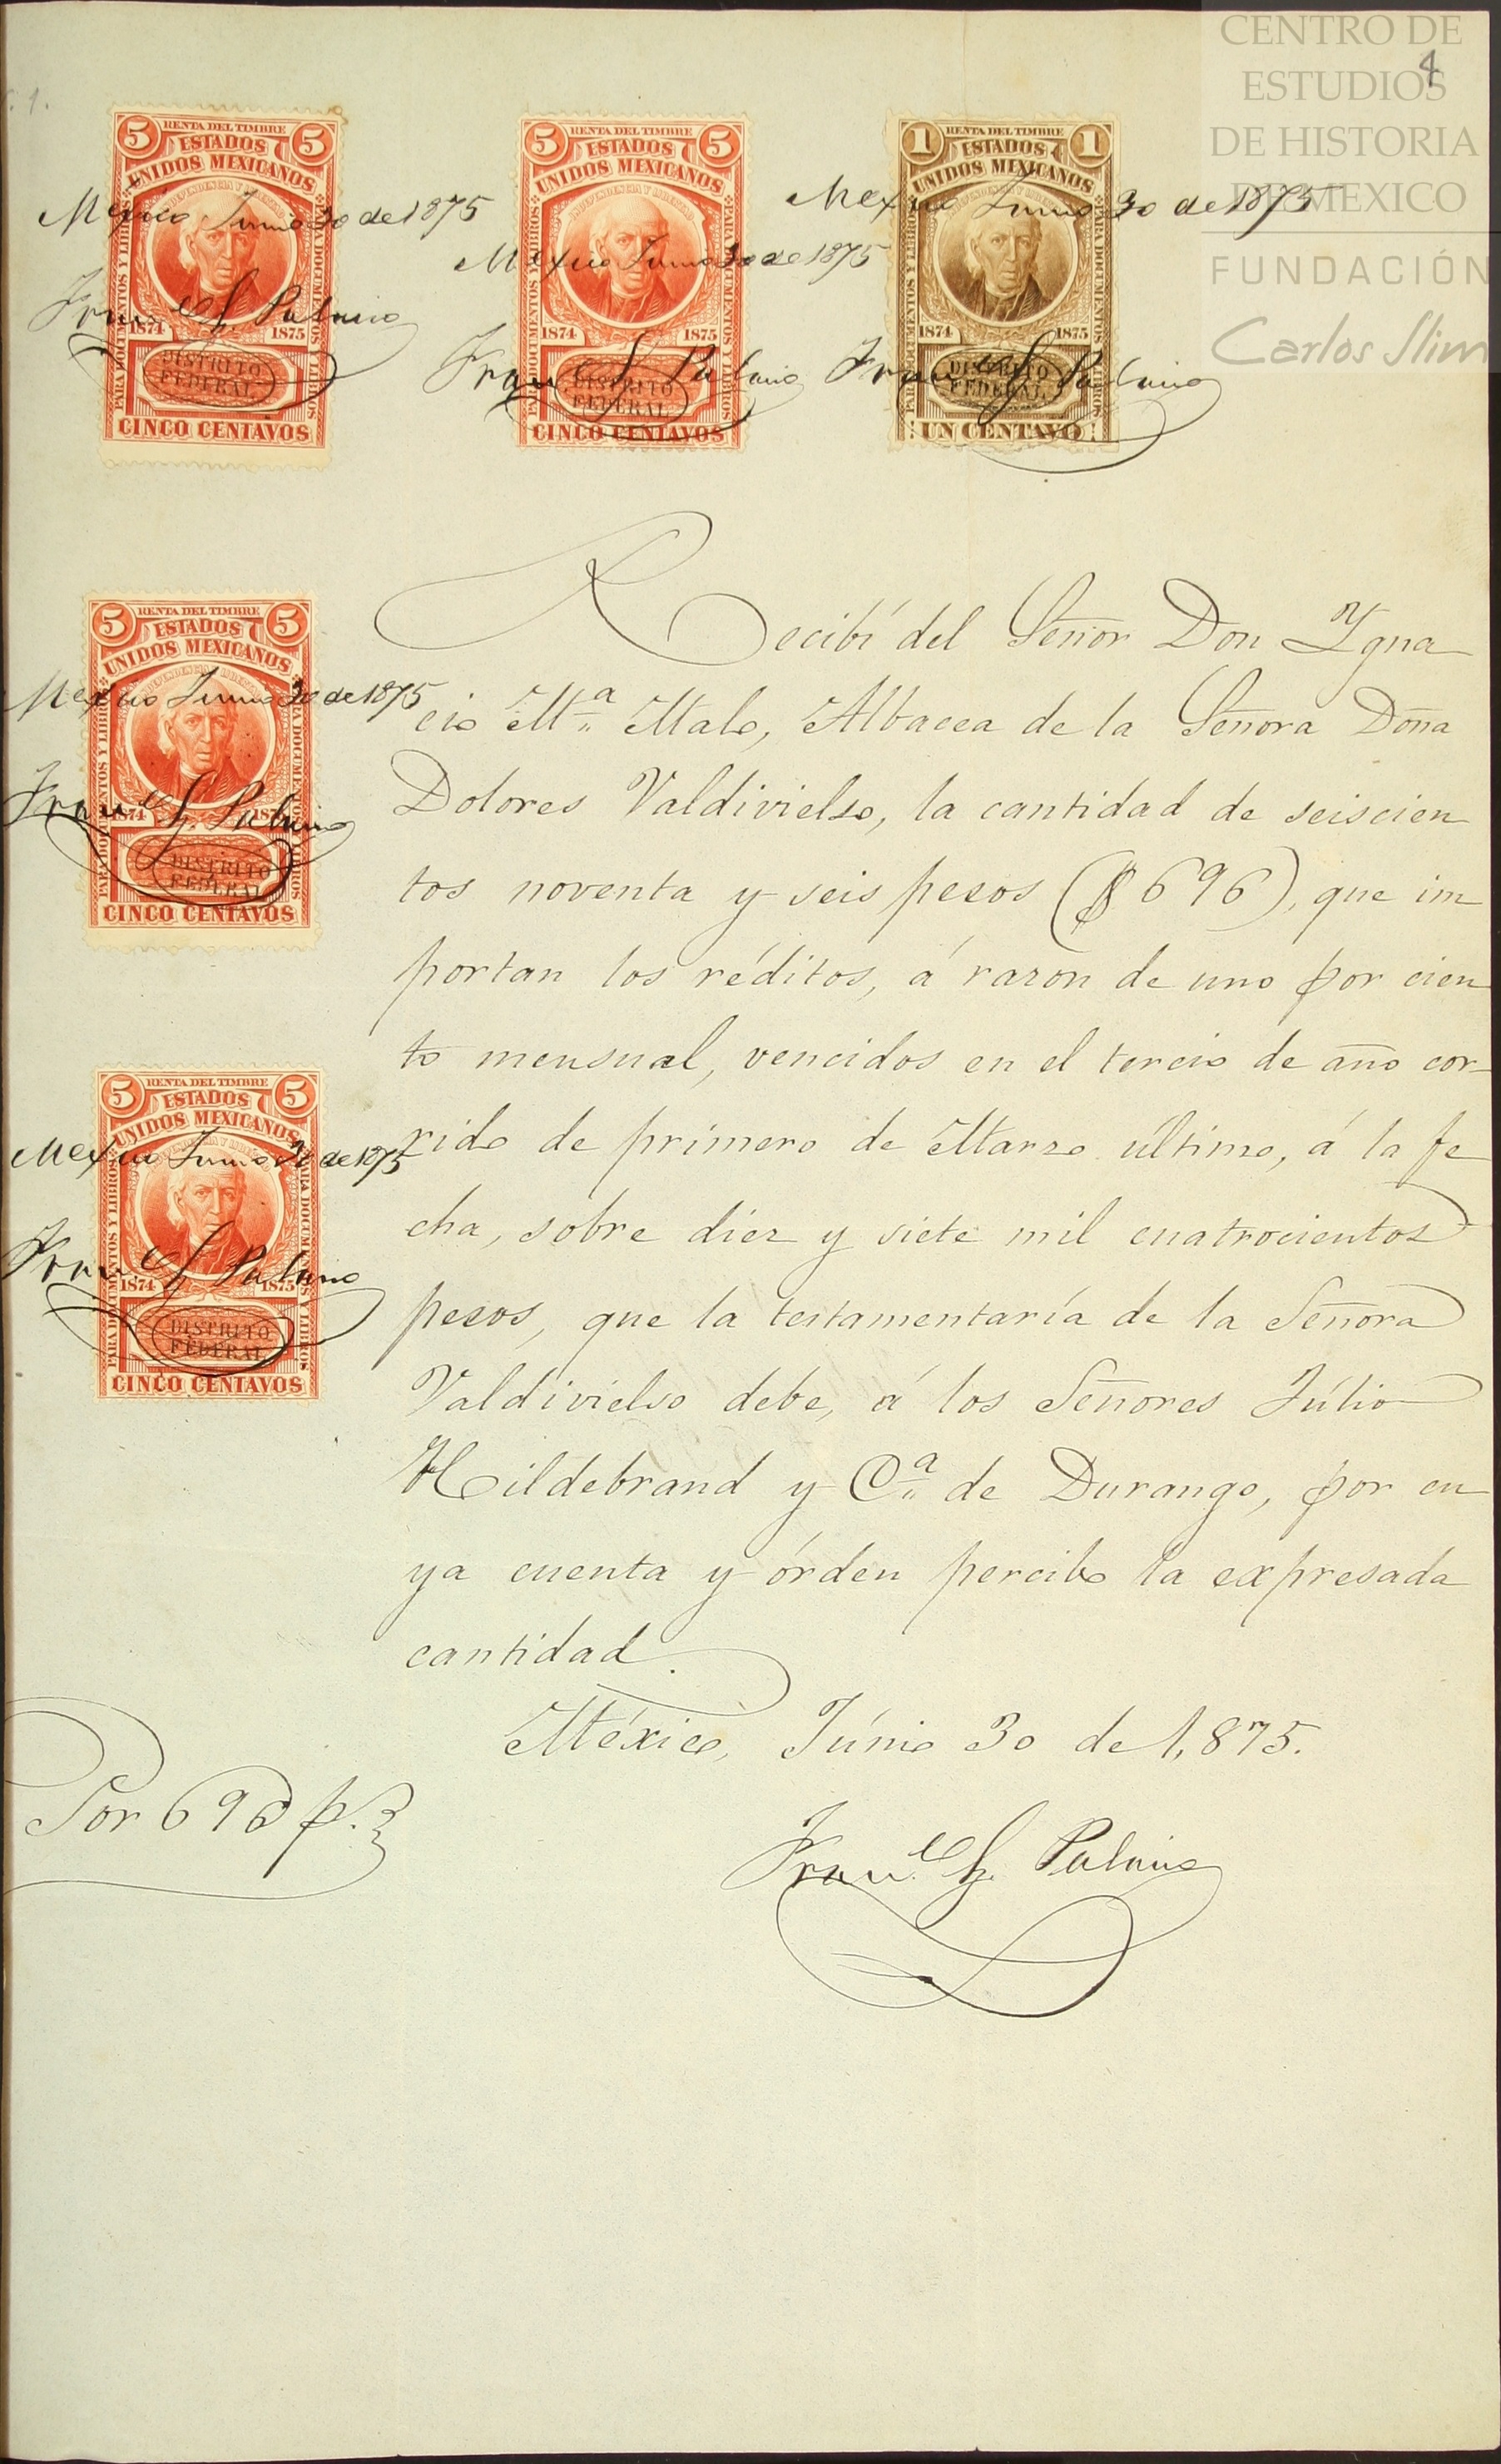 CENTRO DE
ESTUDIOS
DE HISTORIA
DE MEXICO
FUNDACIÓN
Carlos Slim
4
5 RENTA DEL TIMBRE 5
ESTADOS
UNIDOS MEXICANOS
INDEPENDENCIA Y LIBERTAD
PARA DOCUMENTOS Y LIBROS
PARA DOCUMENTOS Y LIBROS
1874 1875
DISTRITO
FEDERAL
CINCO CENTAVOS
México Junio 30 de 1875
Fran.co G. Palacio
5 RENTA DEL TIMBRE 5
ESTADOS
UNIDOS MEXICANOS
INDEPENDENCIA Y LIBERTAD
PARA DOCUMENTOS Y LIBROS
PARA DOCUMENTOS Y LIBROS
1874 1875
DISTRITO
FEDERAL
CINCO CENTAVOS
Mexico Junio 30 de 1875
Fran.co G. Palacio
1 RENTA DEL TIMBRE 1
ESTADOS
UNIDOS MEXICANOS
PARA DOCUMENTOS Y LIBROS
PARA DOCUMENTOS Y LIBROS
1874 1875
DISTRITO
FEDERAL
UN CENTAVO
Mexico Junio 30 de 1875
Fran.co G. Palacio
5 RENTA DEL TIMBRE 5
ESTADOS
UNIDOS MEXICANOS
PARA DOCUMENTOS Y LIBROS
PARA DOCUMENTOS Y LIBROS
1874 1875
DISTRITO
FEDERAL
CINCO CENTAVOS
Mexico Junio 30 de 1875
Fran.co G. Palacio
5 RENTA DEL TIMBRE 5
ESTADOS
UNIDOS MEXICANOS
PARA DOCUMENTOS Y LIBROS
PARA DOCUMENTOS Y LIBROS
1874 1875
DISTRITO
FEDERAL
CINCO CENTAVOS
Mexico Junio 30 de 1875
Fran.co G. Palacio
Recibí del Señor Don Ygna
cio M.ª Malo, Albacea de la Señora Doña
Dolores Valdivielso, la cantidad de seiscien
tos noventa y seis pesos ($696), que im
portan los réditos, á razon de uno por cien
to mensual, vencidos en el tercio de año cor-
rido de primero de Marzo último, á la fe
cha, sobre diez y siete mil cuatrocientos
pesos, que la testamentaría de la Señora
Valdivielso debe, á los Señores Júlio
Hildebrand y C.ª de Durango, por cu
ya cuenta y órden percibo la expresada
cantidad.
México, Júnio 30 de 1,875.
Por 696 p.s
Fran.co G. Palacio